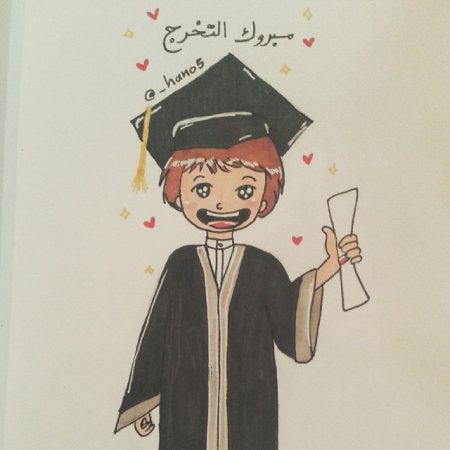 مبروك التخرج
@_hano5